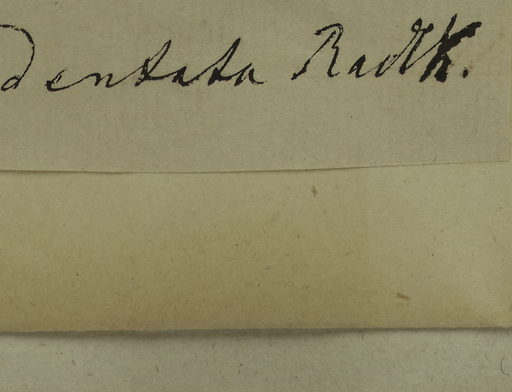 dentata Raddk.